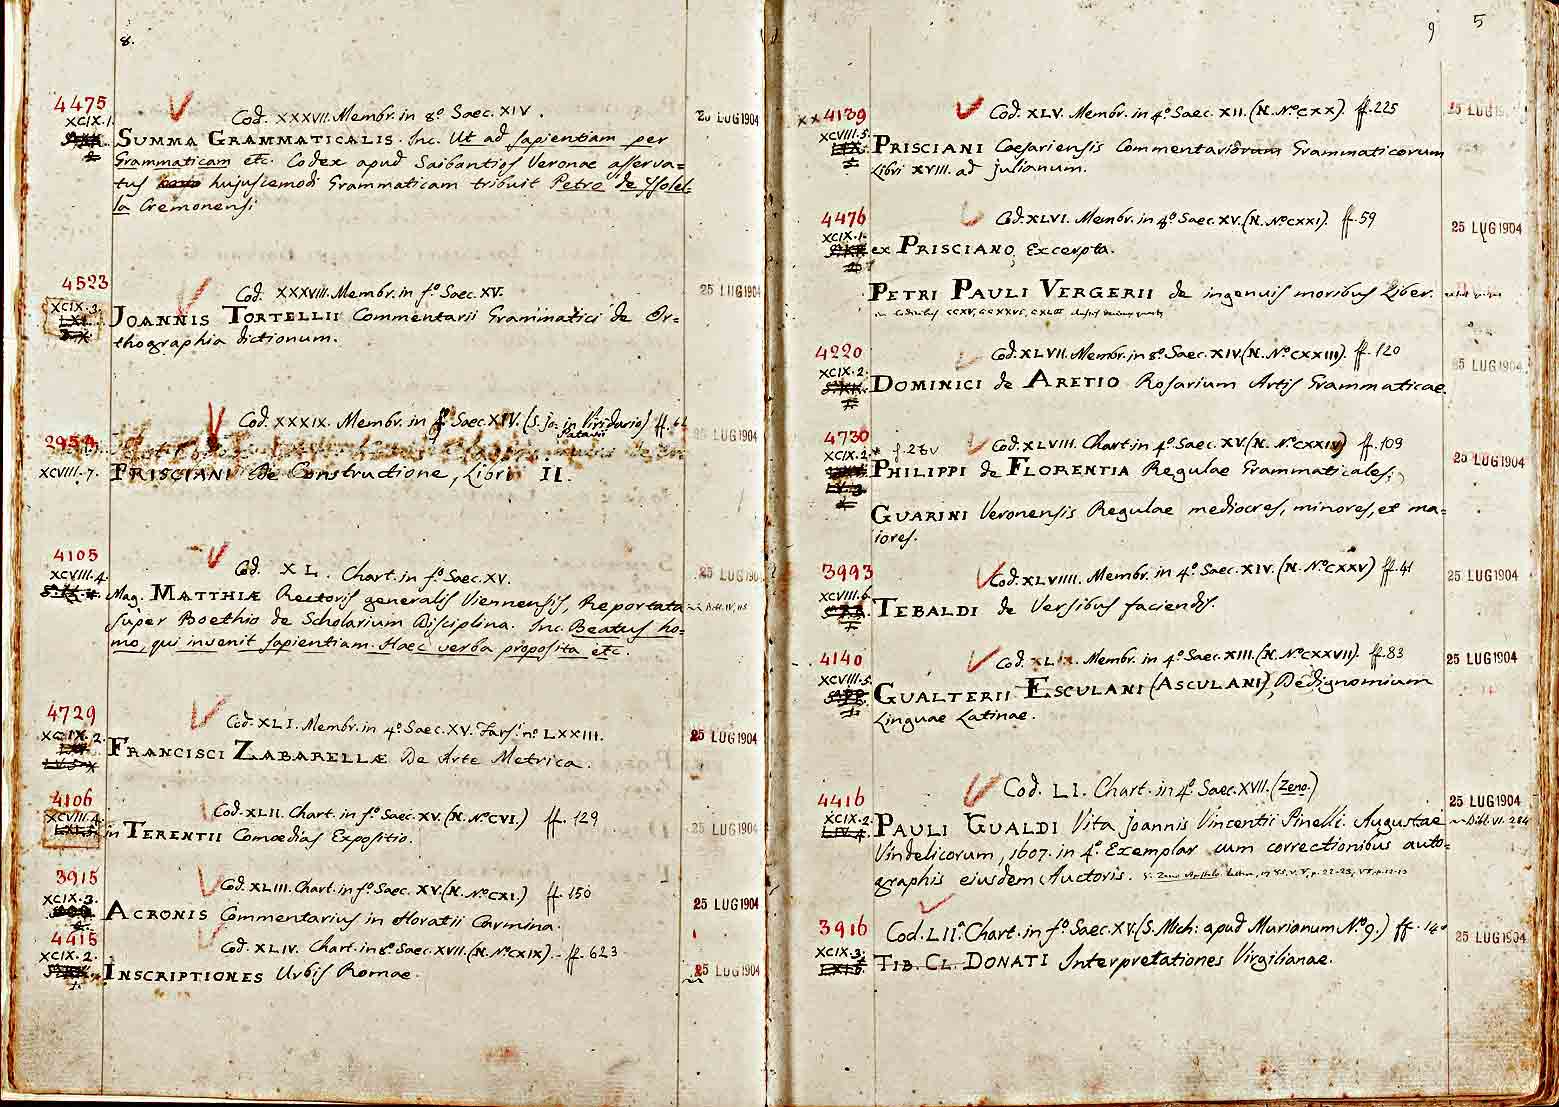 8.
4475
Cod. XXXVII. Membr. in 8.º Saec. XIV.
20 LUG 1904
XCIX. 1.
SUMMA GRAMMATICALIS. Inc. Ut ad sapientiam per
Grammaticam etc. Codex apud Saibantios Veronae asserva=
tus hujuscemodi Grammaticam tribuit Petro de Isolel=
la Cremonensi
4523
Cod. XXXVIII. Membr. in f.º Saec. XV.
25 LUG 1904
XCIX. 3.
JOANNIS TORTELLII Commentarii Grammatici de Or=
thographia dictionum.
Cod. XXXIX. Membr. in f.º Saec. XIV. (S. Jo: in Viridario) ff.
Patavii
25 LUG 1904
XCVIII. 7.
PRISCIANI De Constructione, Libri II.
4105
Cod. XL. Chart. in f.º Saec. XV.
25 LUG 190
XCVIII. 4.
Mag. MATTHIÆ Rectoris generalis Viennensis, Reportata
super Boethio de Scholarium Disciplina. Inc. Beatus ho=
mo, qui invenit sapientiam. Haec verba proposita etc.
4729
Cod. XLI. Membr. in 4.º Saec. XV. Fars. nº LXXIII.
25 LUG 1904
XCIX. 2.
FRANCISCI ZABARELLÆ De Arte Metrica.
4106
Cod. XLII. Chart. in f.º Saec. XV. (N. Nº CVI.) ff. 129
25 LUG 1904
XCVIII. 4.
in TERENTII Comœdias Expositio.
3915
Cod. XLIII. Chart. in f.º Saec. XV. (N. Nº CXI.) ff. 150
25 LUG 1904
XCIX. 3.
ACRONIS Commentarius in Horatii Carmina.
4415
Cod. XLIV. Chart. in 8.º Saec. XVII. (N. Nº CXIX). ff. 623
25 LUG 1904
XCIX. 2.
INSCRIPTIONES Urbis Romae.
9 5
xx4139
Cod. XLV. Membr. in 4.º Saec. XII. (N. Nº CXX) ff. 225
25 LUG 19
XCVIII. 5.
PRISCIANI Caesariensis Commentariorum Grammaticorum
Libri XVIII. ad Julianum.
4476
Cod. XLVI. Membr. in 4.º Saec. XV. (N. Nº CXXI). ff. 59
25 LUG 1904
XCIX. 1.
ex PRISCIANO, Excerpta.
PETRI PAULI VERGERII de ingenuis moribus Liber.
4220
Cod. XLVII. Membr. in 8.º Saec. XIV. (N. Nº CXXIII). ff. 120
25 LUG 1904
XCIX. 2.
DOMINICI de ARETIO Rosarium Artis Grammaticae.
4730
f. 28v
Cod. XLVIII. Chart. in 4.º Saec. XV. (N. Nº CXXIV) ff. 109
25 LUG 1904
XCIX. 2.
PHILIPPI de FLORENTIA Regulae Grammaticales;
GUARINI Veronensis Regulae mediocres, minores, et ma=
iores.
3993
Cod. XLVIIII. Membr. in 4.º Saec. XIV. (N. Nº CXXV) ff. 41
25 LUG 1904
XCVIII. 6.
TEBALDI de Versibus faciendis.
4140
Cod. Membr. in 4.º Saec. XIII. (N. Nº CXXVII). ff. 83
25 LUG 1904
XCVIII. 5.
GUALTERII ESCULANI (ASCULANI), Dedignomium
Linguae Latinae.
4416
Cod. LI. Chart. in 4.º Saec. XVII. (Zeno.)
25 LUG 1904
XCIX. 2.
PAULI GUALDI Vita Joannis Vincentii Pinelli. Augustae
Vindelicorum, 1607. in 4.º Exemplar cum correctionibus auto=
graphis eiusdem Auctoris.
3916
Cod. LII.ª Chart. in f.º Saec. XV. (S. Mich: apud Murianum Nº 9.) ff. 140
25 LUG 1904
XCIX. 3.
TIB. CL. DONATI Interpretationes Virgilianae.